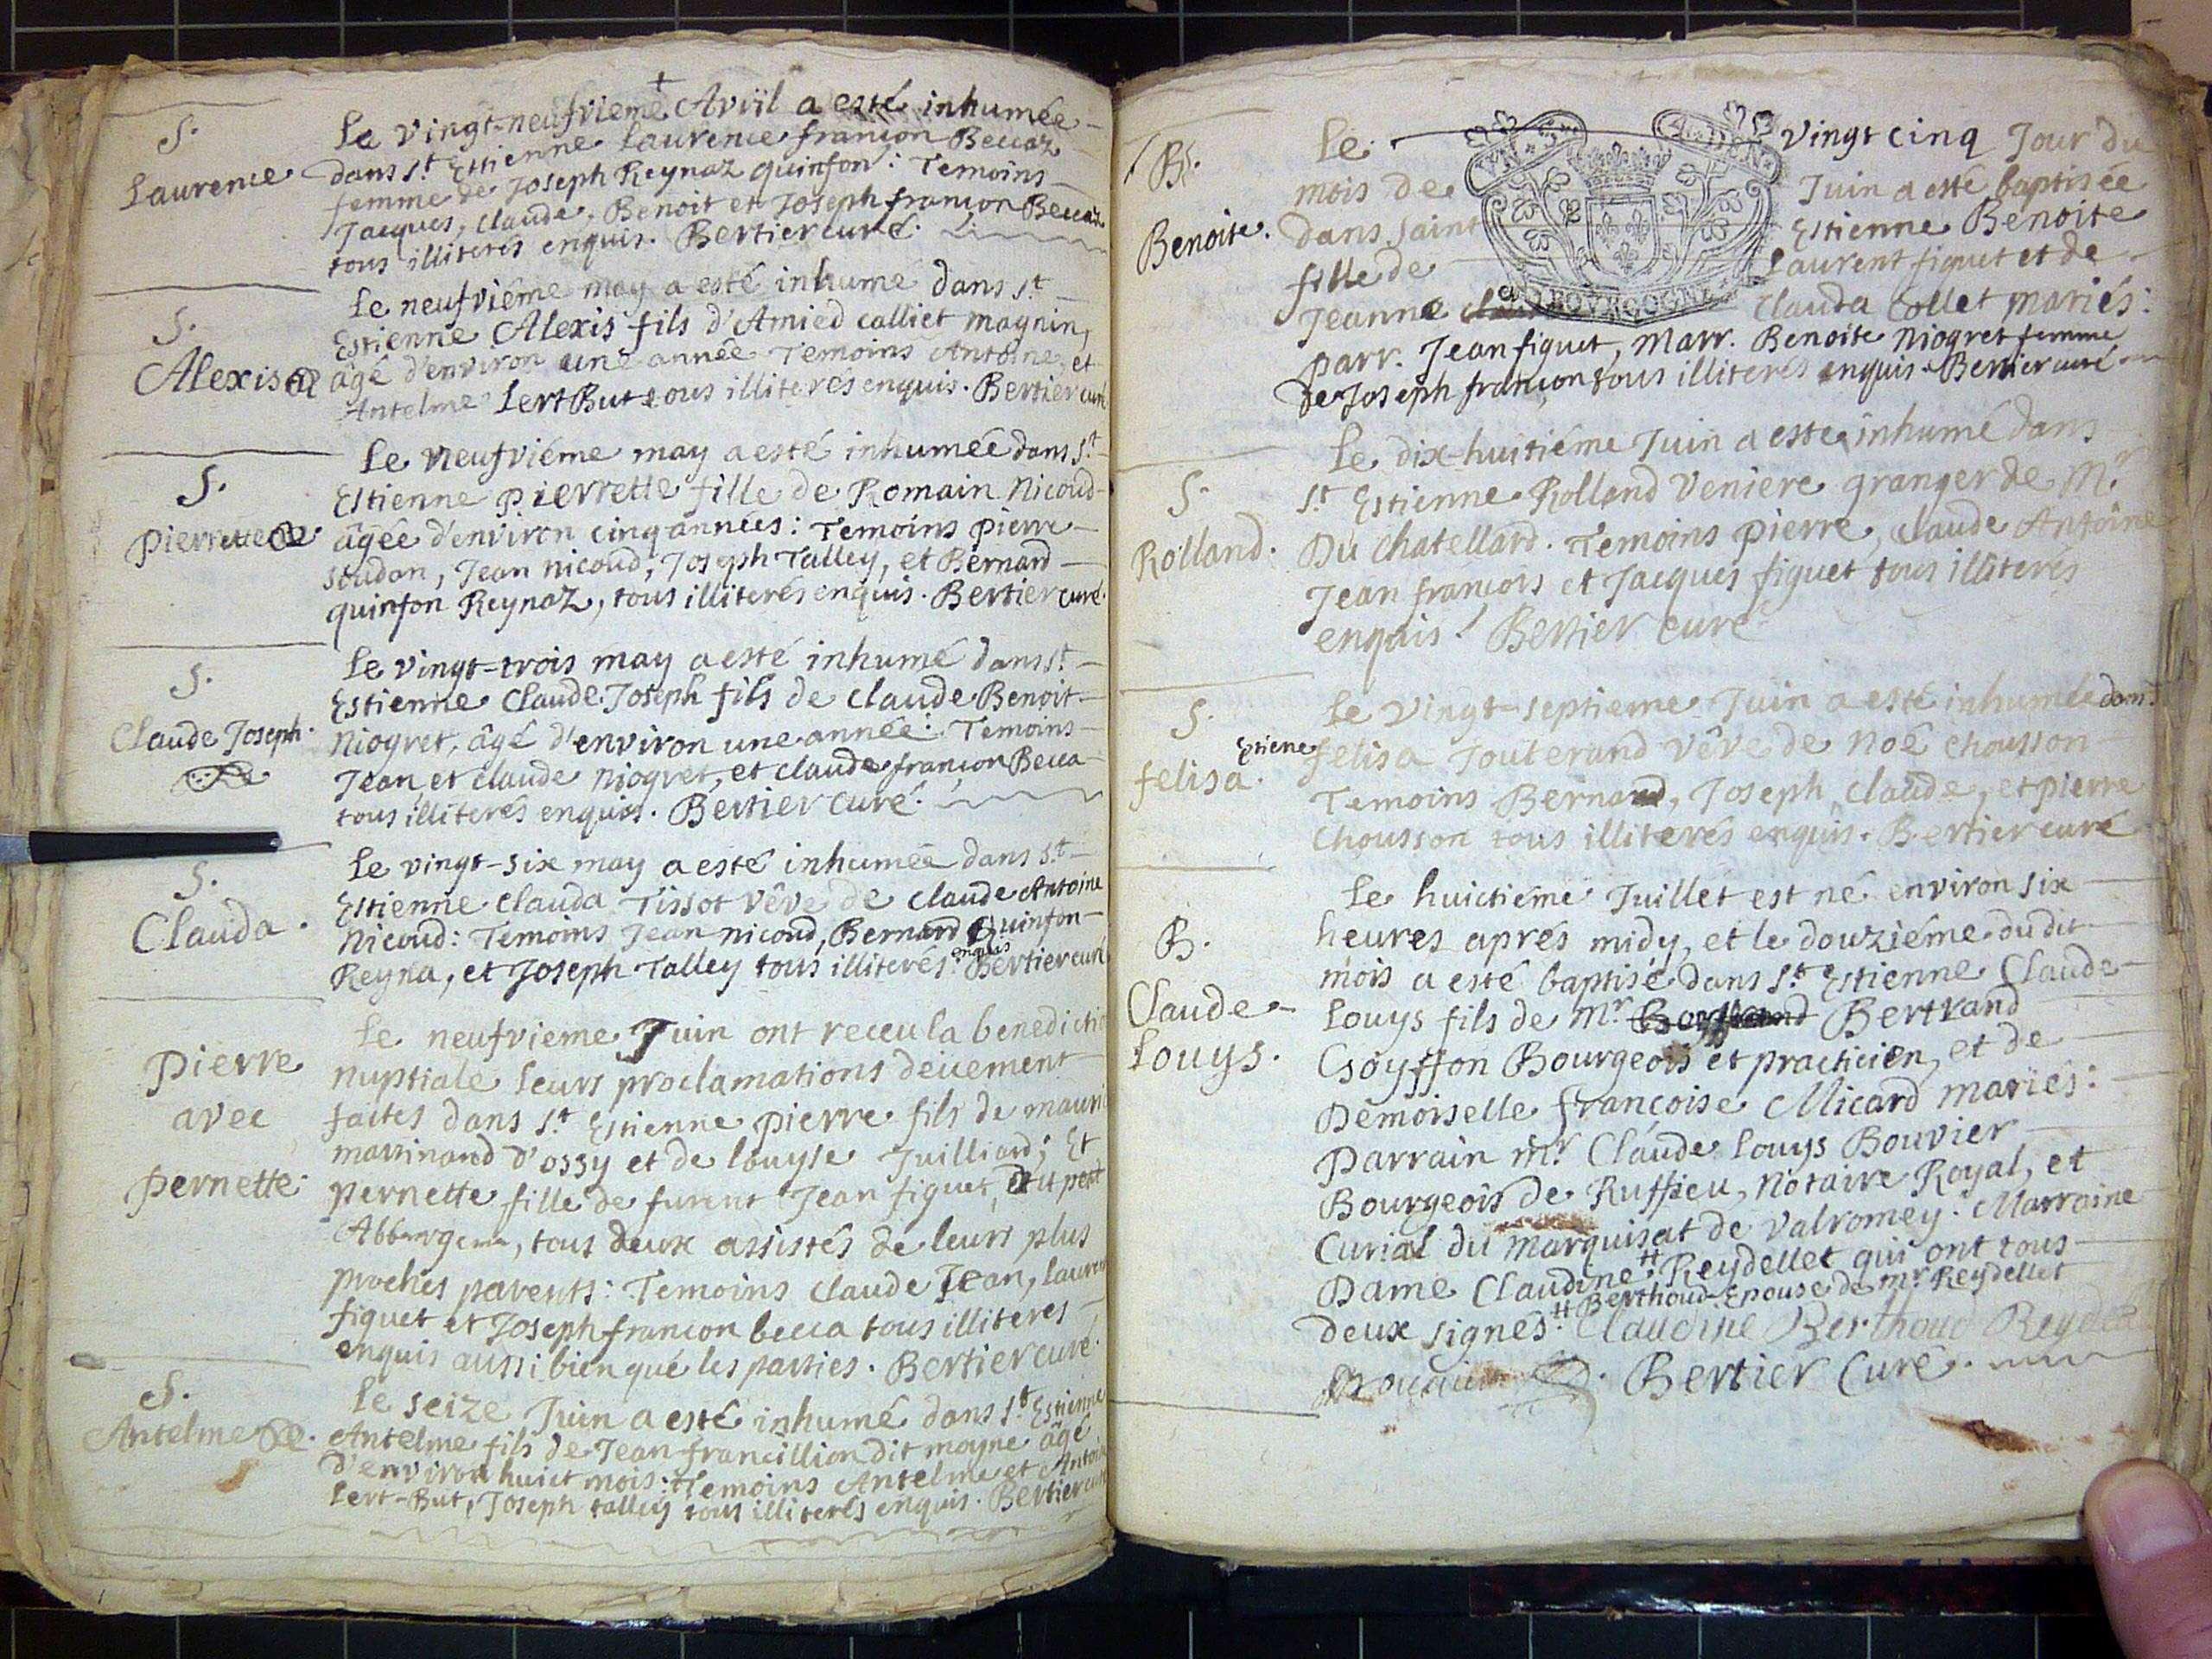 S.
Laurence
Le vingt-neufvieme Avriil a esté inhumée
dans s.t Estienne Laurence françon Beccaz
femme de Joseph Reynaz quinfon: Temoins
Jacques, Claude, Benoit et Joseph françon Beccaz
tous illiterés enquis. Bertier curé.
S.
Alexis
Le neufviéme may a esté inhumé dans s.t
Estienne Alexis fils d'Amied calliet magnin,
âgé d'environ une année Temoins Antoine, et
Antelme Lert But tous illiterés enquis. Bertier curé
S.
pierrette
Le neufviéme may a esté inhumée dans s.t
Estienne pierrette fille de Romain Nicoud
âgée d'environ cinq années: Temoins pierre
soudan, Jean nicoud, Joseph Talley, et Bernard
quinfon Reynaz, tous illiterés enquis. Bertier curé.
S.
Claude Joseph.
Le vingt-trois may a esté inhumé dans s.t
Estienne Claude Joseph fils de Claude Benoit
Niogret, âgé d'environ une année: Temoins
Jean et Claude niogret, et Claude françon Becca
tous illiterés enquis. Bertier Curé.
S.
Clauda.
Le vingt-six may a esté inhumée dans s.t
Estienne Clauda Tissot vêve de Claude Antoine
Nicoud: Temoins Jean nicoud, Bernard Quinfon
Reyna, et Joseph Talley tous illiterés enquis Bertier curé
Pierre
avec
pernette
Le neufvieme Juin ont receu la benedictio
nuptiale leurs proclamations deüement
faites dans s.t Estienne pierre fils de mauri
martinand d'ossy et de louyse Juilliard; Et
pernette fille de furent Jean figuet, dit petit
tous deux assistés de leurs plus
proches parents: Temoins Claude Jean, lauren
figuet et Joseph françon becca tous illiteres
enquis aussi bien que les parties. Bertier curé.
S.
Antelme
Le seize Juin a esté inhumé dans s.t Estienne
Antelme fils de Jean francillion dit moyne âgé
d'environ huict mois: Temoins Antelme et Antoine
Lert-But, Joseph talley tous illiterés enquis. Bertier curé
B.
Benoite.
Le vingt cinq Jour du
mois de Juin a esté baptisée
dans saint Estienne Benoite
fille de Laurent figuet et de
Jeanne Clauda Collet mariés:
BOURGOGNE
parr. Jean figuet, Marr. Benoite Niogret femme
de Joseph françon tous illiterés enquis. Bertier curé
S.
Rolland.
Le dix-huitiéme Juin a esté inhumé dans
s.t Estienne Rolland Veniere granger de M.r
Du Chatellard. Temoins pierre, Claude Antoine
Jean francois et Jacques figuet tous illiterés
enquis. Bertier curé
S.
felisa.
Le vingt-septieme Juin a esté inhumée dans s.t
Etiene felisa Jouterand vêve de Noé Chousson
Temoins Bernard, Joseph, Claude, et pierre
Chousson tous illiterés enquis. Bertier curé
B.
Claude
Louys.
Le huictiéme Juillet est né environ six
heures aprés midy, et le douziéme dudit
mois a esté baptisé dans s.t Estienne Claude
Louys fils de M.r Bertrand
Goyffon Bourgeois et practicien, et de
Demoiselle françoise Micard mariés:
Parrain M.r Claude Louys Bouvier
Bourgeois de Ruffieu, Notaire Royal, et
Curial du Marquisat de Valromey. Marraine
Dame Claudine # Reydellet qui ont tous
# Berthoud Epouse de m.r Reydellet
deux signés. Claudine Berthoud Reydelet
Bertier Curé.